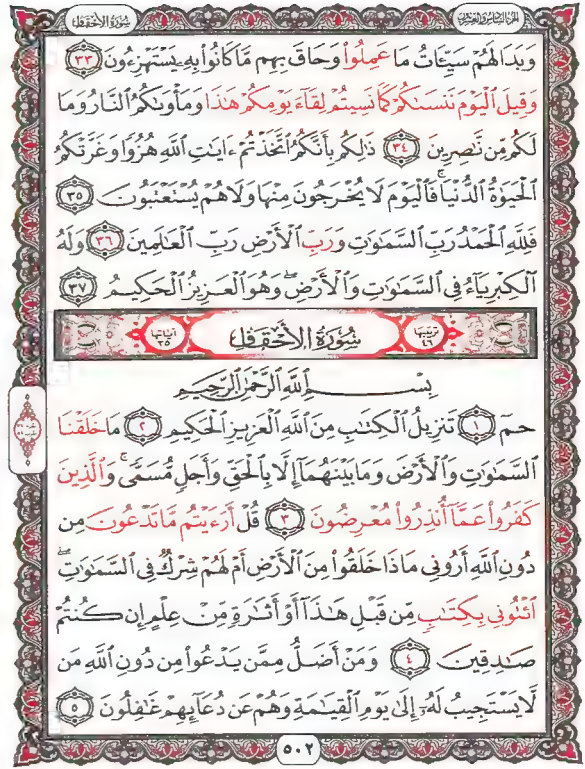 الجزء السادس والعشرون سورة الأحقاف
وَبَدَا لَهُمْ سَيِّـَٔاتُ مَا عَمِلُوا۟ وَحَاقَ بِهِم مَّا كَانُوا۟ بِهِۦ يَسْتَهْزِءُونَ ٣٣
وَقِيلَ ٱلْيَوْمَ نَنسَىٰكُمْ كَمَا نَسِيتُمْ لِقَآءَ يَوْمِكُمْ هَٰذَا وَمَأْوَىٰكُمُ ٱلنَّارُ وَمَا
لَكُم مِّن نَّٰصِرِينَ ٣٤ ذَٰلِكُم بِأَنَّكُمُ ٱتَّخَذْتُمْ ءَايَٰتِ ٱللَّهِ هُزُوًا وَغَرَّتْكُمُ
ٱلْحَيَوٰةُ ٱلدُّنْيَا ۚ فَٱلْيَوْمَ لَا يُخْرَجُونَ مِنْهَا وَلَا هُمْ يُسْتَعْتَبُونَ ٣٥
فَلِلَّهِ ٱلْحَمْدُ رَبِّ ٱلسَّمَٰوَٰتِ وَرَبِّ ٱلْأَرْضِ رَبِّ ٱلْعَٰلَمِينَ ٣٦ وَلَهُ
ٱلْكِبْرِيَآءُ فِى ٱلسَّمَٰوَٰتِ وَٱلْأَرْضِ ۖ وَهُوَ ٱلْعَزِيزُ ٱلْحَكِيمُ ٣٧
ترتيبها ٤٦ سُورَةُ الأَحْقَافِ آياتها ٣٥
بِسْمِ ٱللَّهِ ٱلرَّحْمَٰنِ ٱلرَّحِيمِ
حمٓ ١ تَنزِيلُ ٱلْكِتَٰبِ مِنَ ٱللَّهِ ٱلْعَزِيزِ ٱلْحَكِيمِ ٢ مَا خَلَقْنَا
ٱلسَّمَٰوَٰتِ وَٱلْأَرْضَ وَمَا بَيْنَهُمَآ إِلَّا بِٱلْحَقِّ وَأَجَلٍ مُّسَمًّى ۚ وَٱلَّذِينَ
كَفَرُوا۟ عَمَّآ أُنذِرُوا۟ مُعْرِضُونَ ٣ قُلْ أَرَءَيْتُم مَّا تَدْعُونَ مِن
دُونِ ٱللَّهِ أَرُونِى مَاذَا خَلَقُوا۟ مِنَ ٱلْأَرْضِ أَمْ لَهُمْ شِرْكٌ فِى ٱلسَّمَٰوَٰتِ ۖ
ٱئْتُونِى بِكِتَٰبٍ مِّن قَبْلِ هَٰذَآ أَوْ أَثَٰرَةٍ مِّنْ عِلْمٍ إِن كُنتُمْ
صَٰدِقِينَ ٤ وَمَنْ أَضَلُّ مِمَّن يَدْعُوا۟ مِن دُونِ ٱللَّهِ مَن
لَّا يَسْتَجِيبُ لَهُۥٓ إِلَىٰ يَوْمِ ٱلْقِيَٰمَةِ وَهُمْ عَن دُعَآئِهِمْ غَٰفِلُونَ ٥
٥٠٢